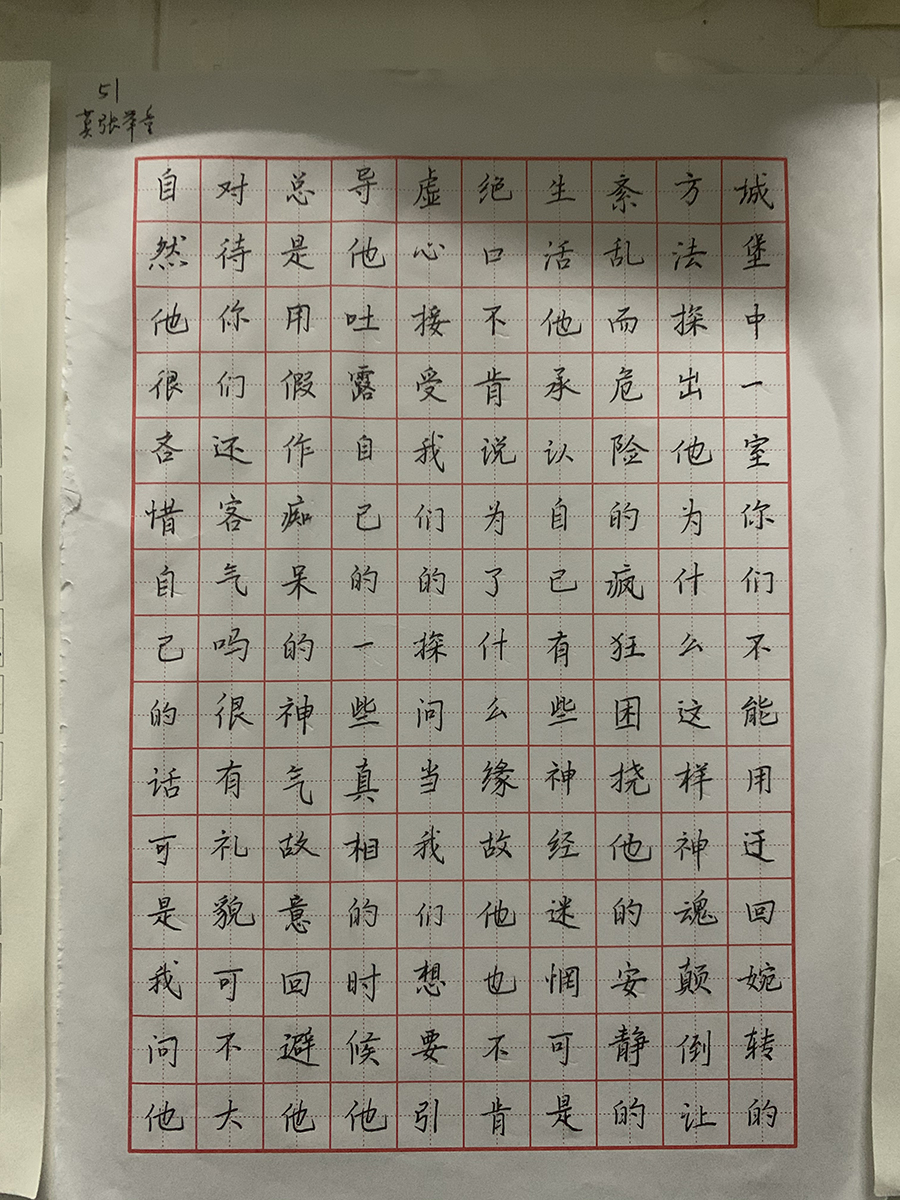 51
城堡中一室你们不能用迂回婉转的
方法探出他为什么这样神魂颠倒让
紊乱而危险的疯狂困挠他的安静的
生活他承认自己有些神经迷惘可是
绝口不肯说为了什么缘故他也不肯
虚心接受我们的探问当我们想要引
导他吐露自己的一些真相的时候他
总是用假作痴呆的神气故意回避他
对待你们还客气吗很有礼貌可不大
自然他很吝惜自己的话可是我问他